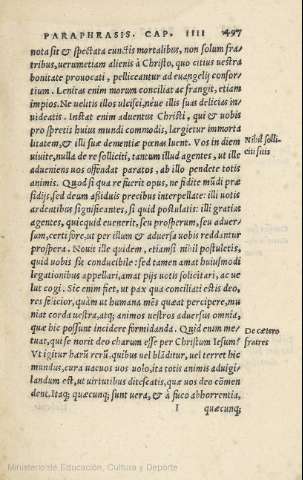 PARAPHRASIS. CAP. IIII 497
nota sit & spectata cunctis mortalibus, non solum fra-
tribus, verumetiam alienis à Christo, quo citius vestra
bonitate prouocati, pelliceantur ad euangelij consor-
tium. Lenitas enim morum conciliat ac frangit, etiam
impios. Ne uelitis illos ulcisci, néue illis suas delicias in-
uideatis. Instat enim aduentus Christi, qui & uobis
pro spretis huius mundi commodis, largietur immorta
litatem, & illi suæ dementiæ pœnas luent. Vos in diem
uiuite, nulla de re solliciti, tantum illud agentes, ut ille
adueniens uos offendat paratos, ab illo pendete totis
animis. Quòd si qua re fuerit opus, ne fidite mūdi præ
sidijs, sed deum assiduis precibus interpellate: illi uotis
ardentibus significantes, si quid postulatis: illi gratias
agentes, quicquid euenerit, seu prosperum, seu aduer-
sum, certi fore, ut per illum & aduersa uobis reddantur
prospera. Nouit ille quidem, etiamsi nihil postuletis,
quid uobis sit conducibile: sed tamen amat huiusmodi
legationibus appellari, amat pijs uotis solicitari, ac ue
lut cogi. Sic enim fiet, ut pax qua conciliati estis deo,
res felicior, quàm ut humana mēs queat percipere, mu
niat corda uestra, atq; animos uestros aduersus omnia,
quæ hic possunt incidere formidanda. Quid enim me-
tuat, qui se norit deo charum esse per Christum Iesum?
Vt igitur harū rerū. quibus uel blāditur, uel terret hic
mundus, cura uacuos uos uolo, ita totis animis aduigi-
landum est, ut uirtutibus ditescatis, quæ uos deo cōmen
dent. Itaq; quæcunq; sunt uera, & à fuco abhorrentia,
I quæcunq;
Nihil solli-
citi sitis
De cætero
fratres
Ministerio de Educación, Cultura y Deporte